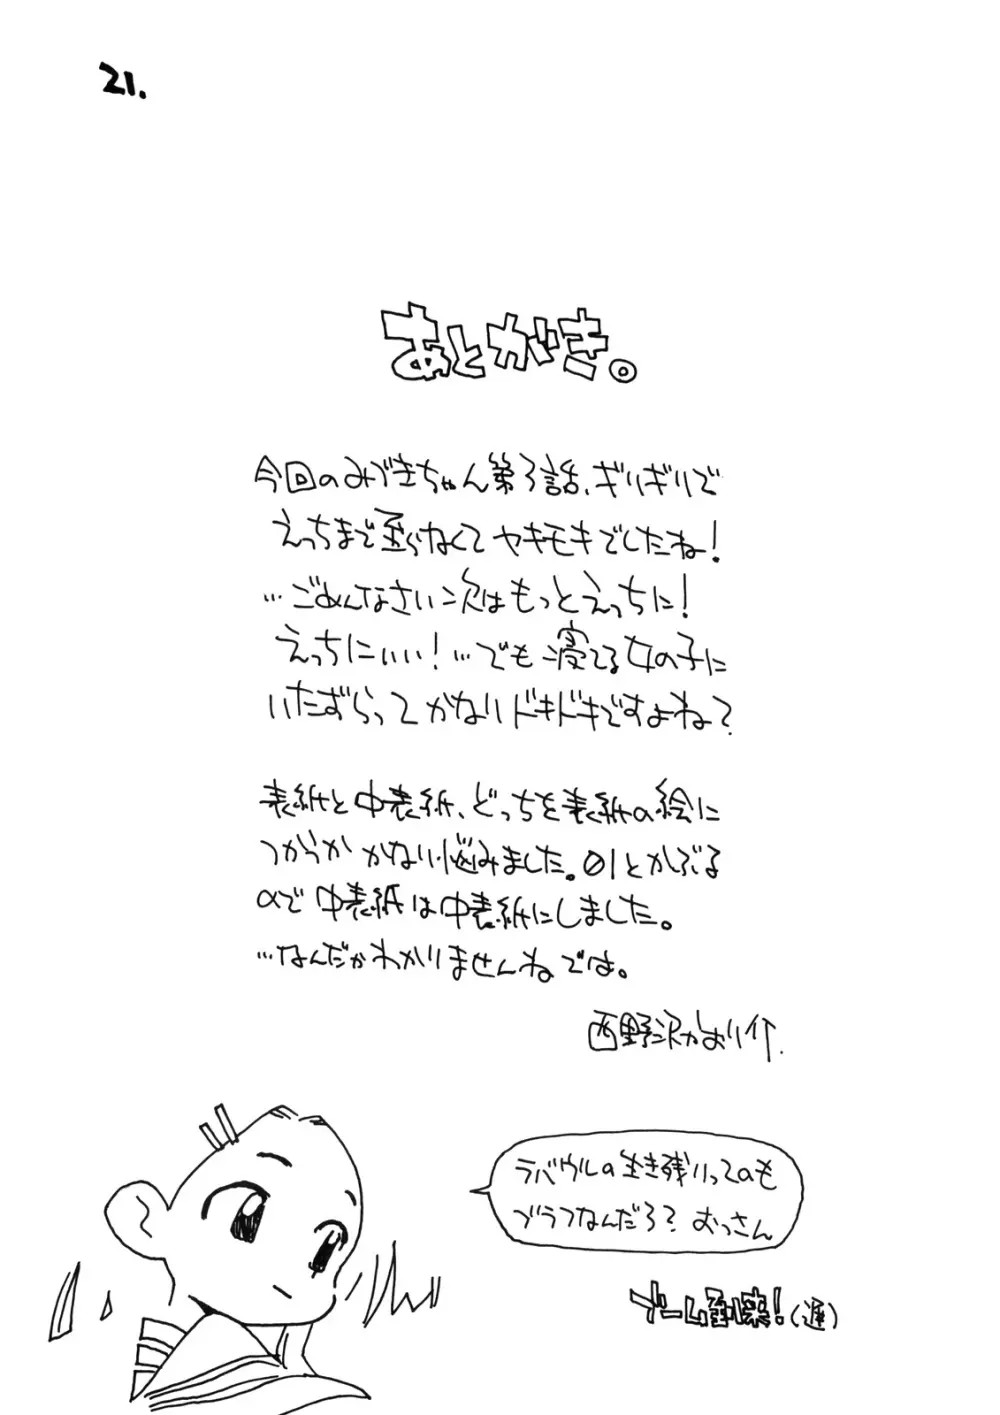 21.
あとがき。
今回のみづきちゃん第3話、ギリギリで
えっちまで至らなくてヤキモキでしたね!
…ごめんなさい次はもっとえっちに!
えっちにぃぃ!…でも寝てる女の子に
いたずらってかなりドキドキですよね?
表紙と中表紙、どっちを表紙の絵に
つかうかかなり悩みました。01とかぶる
ので中表紙は中表紙にしました。
…なんだかわかりませんねでは。
西野沢かおり介.
ラバウルの生き残りってのも
ブラフなんだろ?おっさん
ブーム到来!(遅)